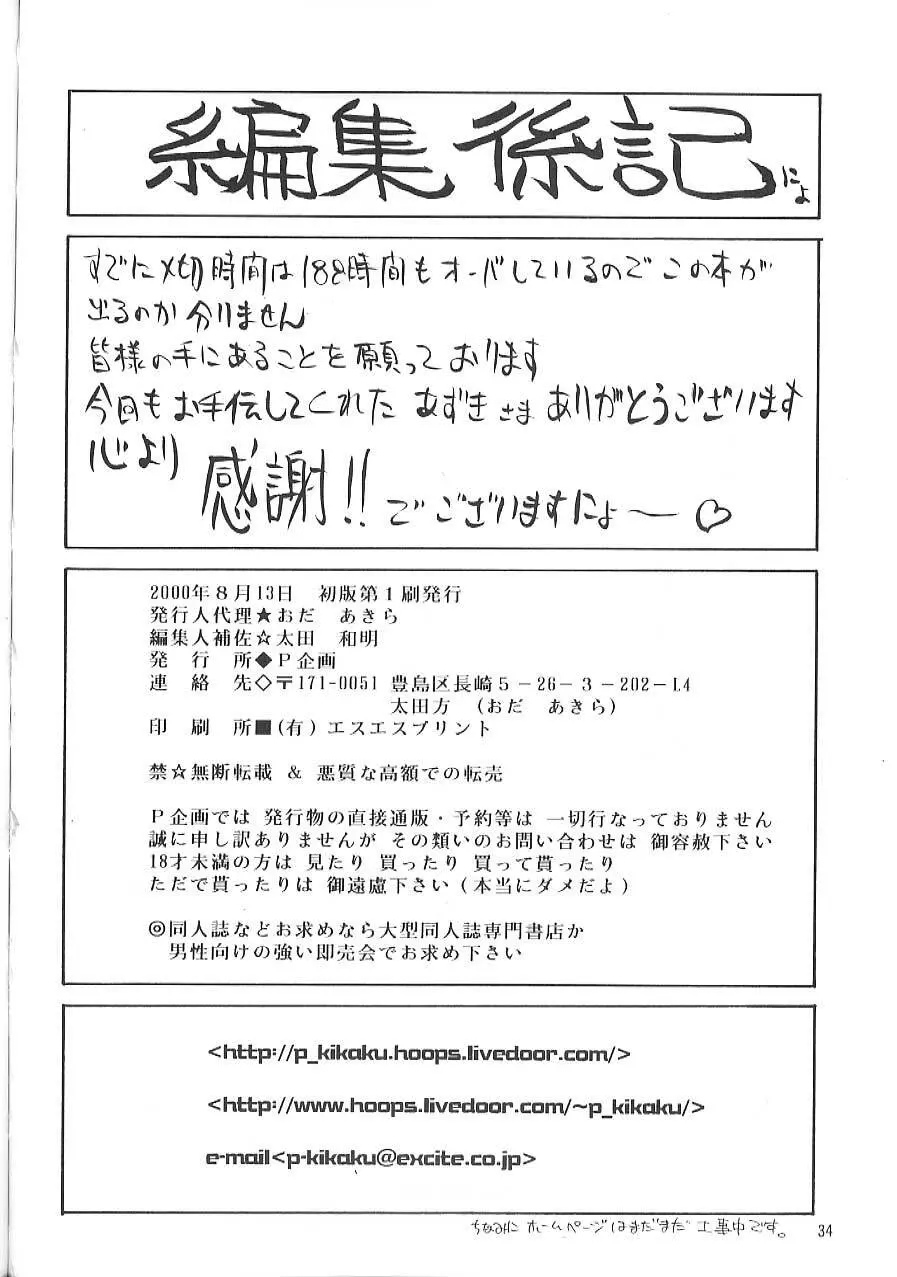 編集後記にょ
すでに〆切時間は188時間もオーバしているのでこの本が
出るのか分りません
皆様の手にあることを願っております
今回もお手伝してくれたあずきさまありがとうございます
心より
感謝!!でございますにょ〜♡
2000年8月13日 初版第1刷発行
発行人代理★おだ あきら
編集人補佐☆太田 和明
発 行 所◆P企画
連 絡 先◇〒171-0051 豊島区長崎5-26-3-202-L4
太田方 (おだ あきら)
印 刷 所■(有)エスエスプリント
禁☆無断転載 & 悪質な高額での転売
P企画では 発行物の直接通版・予約等は 一切行なっておりません
誠に申し訳ありませんが その類いのお問い合わせは 御容赦下さい
18才未満の方は 見たり 買ったり 買って貰ったり
ただで貰ったりは 御遠慮下さい(本当にダメだよ)
◎同人誌などお求めなら大型同人誌専門書店か
男性向けの強い即売会でお求め下さい
<http://p_kikaku.hoops.livedoor.com/>
<http://www.hoops.livedoor.com/~p_kikaku/>
e-mail<p-kikaku@excite.co.jp>
ちなみに ホームページはまだまだ 工事中です。
34